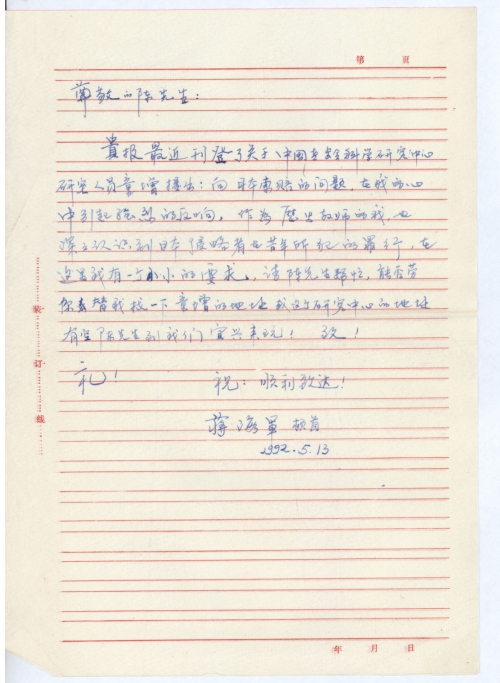 第 页
尊敬的陈先生：
贵报最近刊登了关于《中国老年科学研究中心
研究人员童增提出：向日本索赔的问题，在我的心
中引起强烈的反响，作为历史教师的我，也
深深认识到日本侵略者在当年所犯的罪行，在
这里我有一个小小的要求，请陈先生帮忙，能否劳
您去替我找一下童增的地址或这个研究中心的地址
有空陈先生到我们宜兴来玩！ 致！
礼！ 祝：顺利发达！
蒋海军 顿首
1992.5.13
装
订
线
年 月 日